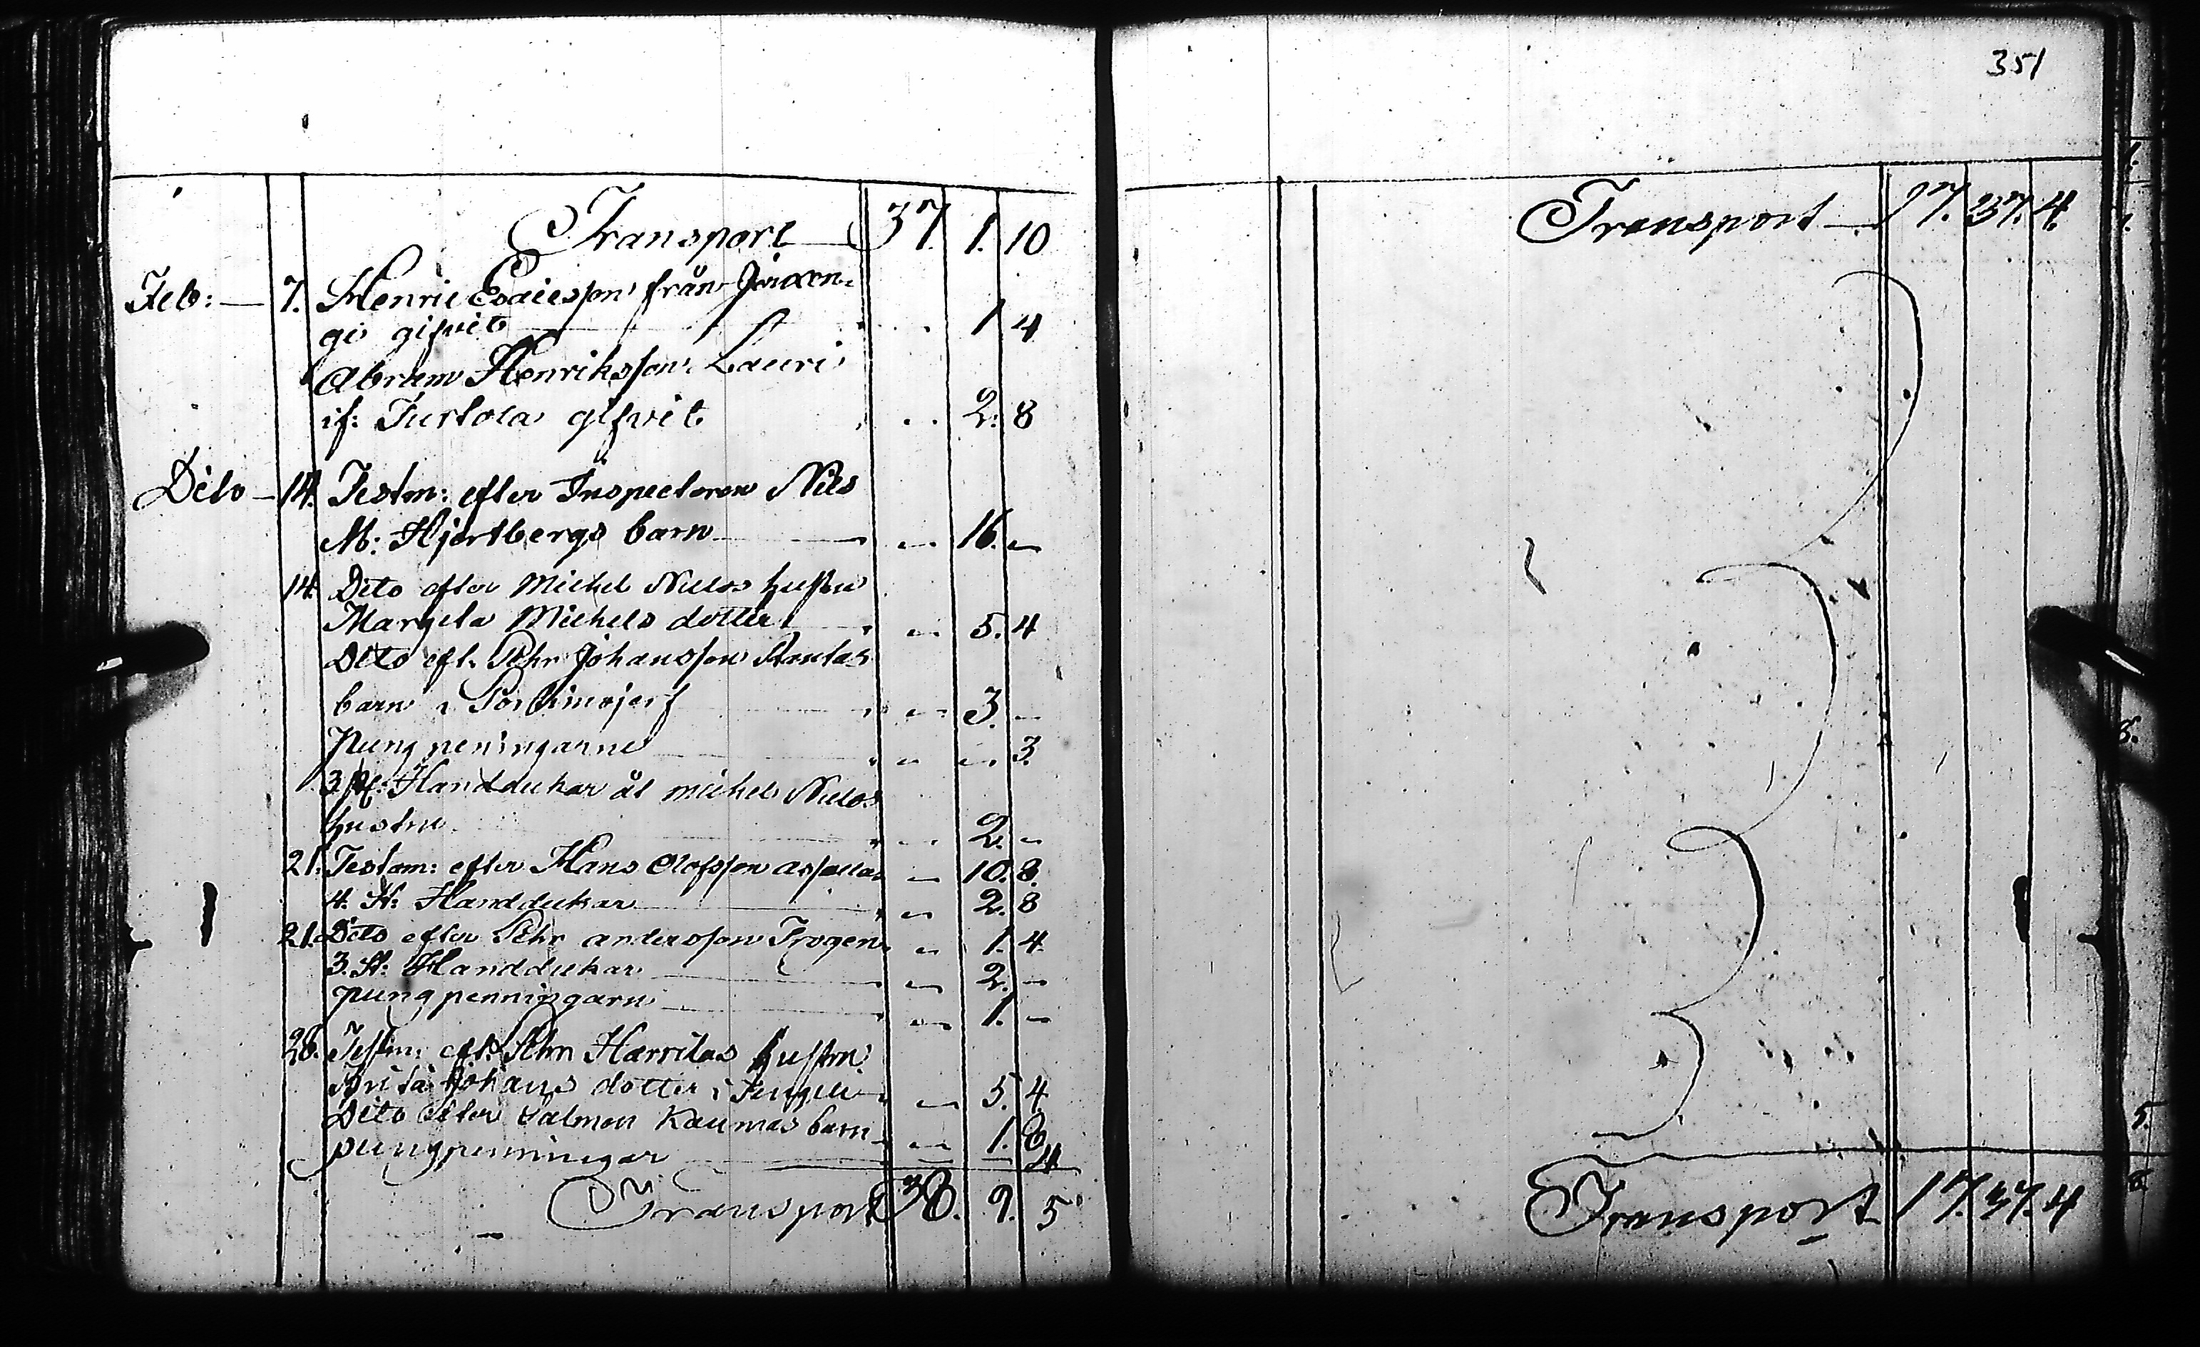 351
Transport 37. 1. 10
Feb: 7. Henric Esaiesson från Juxen-
gi gifvit 1 4
Abram Henriksson Lauri
if: Turtola gifvit 2. 8
Dito 14. Testm: efter Inspectoren Nils
M: Hjertbergs barn 16.
14. Dito efter Michel Nielos hustru
Margeta Michels dotter 5. 4
Dito eft. Pehr Johansson
barn i 3.
Pungpeningarne 3.
3 st: Handdukar åt michel Nielos
hustru 2.
21. Testam: efter Hans Olofsson 10. 8.
4. st: Handdukar 2. 8
21. Dito efter Pehr andersson Frogen 1. 4
3. st: Handdukar 2.
pungpenningarn 1.
28. Testm: eft: Pehr hustru
Brita Johans dotter i 5. 4
Dito efter Salmon Kaumas barn 1. 8
pungpenningar 4
Transport 38. 9. 5
Transport 17. 37. 4
Transport 17. 37. 4